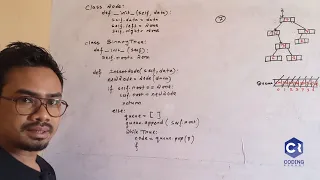 Class Node:
def __init__(self, data):
self.data = data
self.left = None
self.right = None
class BinaryTree:
def __init__(self):
self.root = None
def InsertNode(self, data):
newNode = Node(data)
if self.root == None:
self.root = newNode
return
else:
queue = [ ]
queue.append(self.root)
while True:
node = queue.pop(0)
if
Queue
CODING